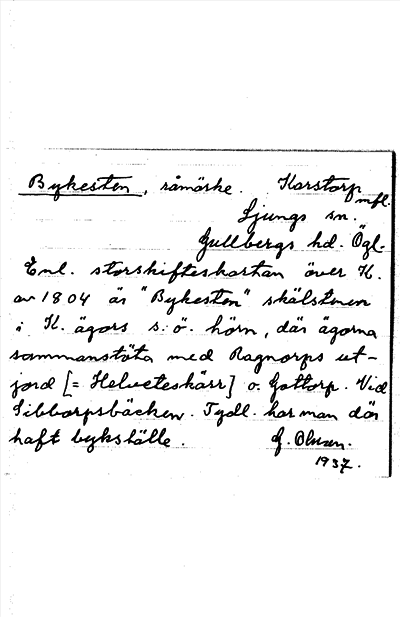 Bykesten, råmärke. Karstorp mfl.
Ljungs sn.
Gullbergs hd. Ögl.
Enl. storskifteskartan över K.
av 1804 är "Bykesten" skälstenen
i K. ägors s.ö. hörn, där ägorna
sammanstöta med Ragnorps ut-
jord [= Helveteskärr] o. Gottorp. Vid
Sibborpsbäcken. Tydl. har man där
haft bykställe. G. Olsson.
1937.